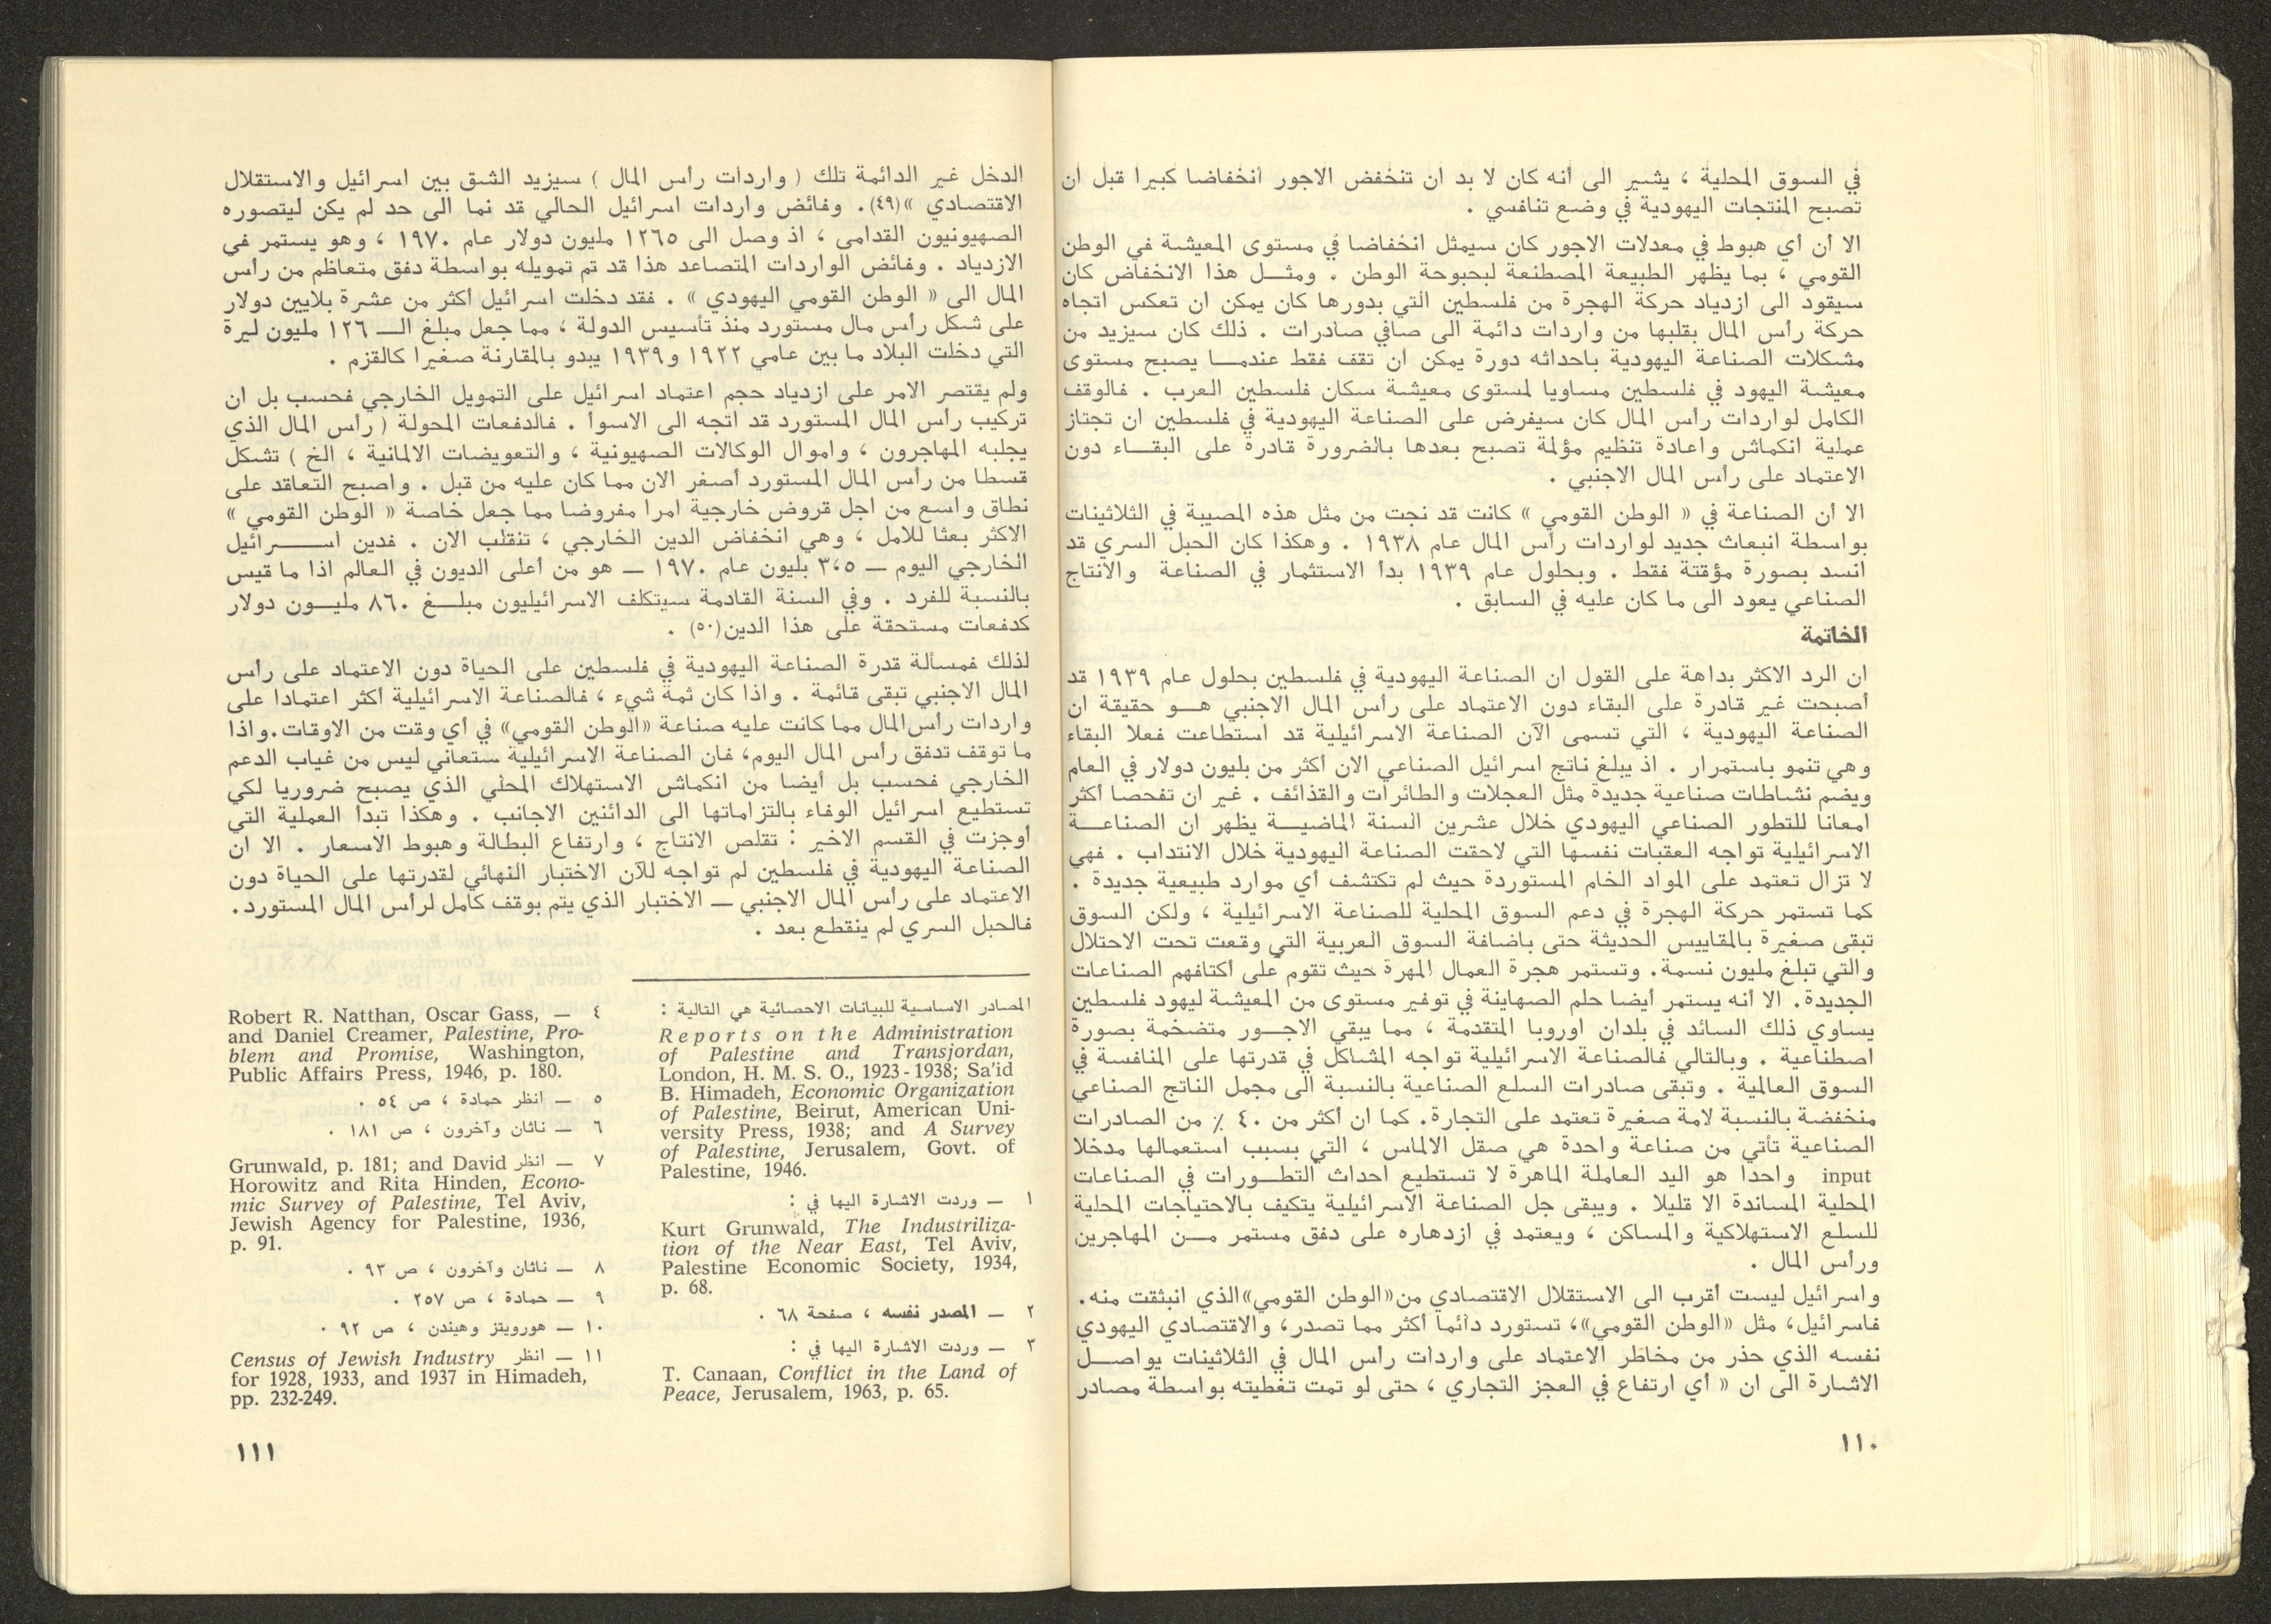 في السوق المحلية ، يشير الى أنه كان لا بد ان تنخفض الاجور انخفاضا كبيرا قبل ان
تصبح المنتجات اليهودية في وضع تنافسي .
الا أن أي هبوط في معدلات الاجور كان سيمثل انخفاضا في مستوى المعيشة في الوطن
القومي ، بما يظهر الطبيعة المصطنعة لبحبوحة الوطن . ومثـــل هذا الانخفاض كان
سيقود الى ازدياد حركة الهجرة من فلسطين التي بدورها كان يمكن ان تعكس اتجاه
حركة رأس المال بقلبها من واردات دائمة الى صافي صادرات . ذلك كان سيزيد من
مشكلات الصناعة اليهودية باحداثه دورة يمكن ان تقف فقط عندمـــا يصبح مستوى
معيشة اليهود في فلسطين مساويا لمستوى معيشة سكان فلسطين العرب . فالوقف
الكامل لواردات رأس المال كان سيفرض على الصناعة اليهودية في فلسطين ان تجتاز
عملية انكماش واعادة تنظيم مؤلمة تصبح بعدها بالضرورة قادرة على البقـــاء دون
الاعتماد على رأس المال الاجنبي .
الا أن الصناعة في « الوطن القومي » كانت قد نجت من مثل هذه المصيبة في الثلاثينات
بواسطة انبعاث جديد لواردات رأس المال عام ١٩٣٨ . وهكذا كان الحبل السري قد
انسد بصورة مؤقتة فقط . وبحلول عام ١٩٣٩ بدأ الاستثمار في الصناعة والانتاج
الصناعي يعود الى ما كان عليه في السابق .
الخاتمة
ان الرد الاكثر بداهة على القول ان الصناعة اليهودية في فلسطين بحلول عام ١٩٣٩ قد
أصبحت غير قادرة على البقاء دون الاعتماد على رأس المال الاجنبي هـــو حقيقة ان
الصناعة اليهودية ، التي تسمى الآن الصناعة الاسرائيلية قد استطاعت فعلا البقاء
وهي تنمو باستمرار . اذ يبلغ ناتج اسرائيل الصناعي الان أكثر من بليون دولار في العام
ويضم نشاطات صناعية جديدة مثل العجلات والطائرات والقذائف . غير ان تفحصا أكثر
امعانا للتطور الصناعي اليهودي خلال عشرين السنة الماضيـــة يظهر ان الصناعـــة
الاسرائيلية تواجه العقبات نفسها التي لاحقت الصناعة اليهودية خلال الانتداب . فهي
لا تزال تعتمد على المواد الخام المستوردة حيث لم تكتشف أي موارد طبيعية جديدة .
كما تستمر حركة الهجرة في دعم السوق المحلية للصناعة الاسرائيلية ، ولكن السوق
تبقى صغيرة بالمقاييس الحديثة حتى باضافة السوق العربية التي وقعت تحت الاحتلال
والتي تبلغ مليون نسمة. وتستمر هجرة العمال المهرة حيث تقوم على أكتافهم الصناعات
الجديدة. الا أنه يستمر أيضا حلم الصهاينة في توفير مستوى من المعيشة ليهود فلسطين
يساوي ذلك السائد في بلدان اوروبا المتقدمة ، مما يبقي الاجـــور متضخمة بصورة
اصطناعية . وبالتالي فالصناعة الاسرائيلية تواجه المشاكل في قدرتها على المنافسة في
السوق العالمية . وتبقى صادرات السلع الصناعية بالنسبة الى مجمل الناتج الصناعي
منخفضة بالنسبة لامة صغيرة تعتمد على التجارة. كما ان أكثر من ٤٠ ٪ من الصادرات
الصناعية تأتي من صناعة واحدة هي صقل الالماس ، التي بسبب استعمالها مدخلا
input واحدا هو اليد العاملة الماهرة لا تستطيع احداث التطـــورات في الصناعات
المحلية المساندة الا قليلا . ويبقى جل الصناعة الاسرائيلية يتكيف بالاحتياجات المحلية
للسلع الاستهلاكية والمساكن ، ويعتمد في ازدهاره على دفق مستمر مـــن المهاجرين
ورأس المال .
واسرائيل ليست أقرب الى الاستقلال الاقتصادي من«الوطن القومي»الذي انبثقت منه.
فاسرائيل، مثل «الوطن القومي»، تستورد دائما أكثر مما تصدر، والاقتصادي اليهودي
نفسه الذي حذر من مخاطر الاعتماد على واردات رأس المال في الثلاثينات يواصـــل
الاشارة الى ان « أي ارتفاع في العجز التجاري ، حتى لو تمت تغطيته بواسطة مصادر
١١٠
الدخل غير الدائمة تلك ( واردات رأس المال ) سيزيد الشق بين اسرائيل والاستقلال
الاقتصادي »(٤٩). وفائض واردات اسرائيل الحالي قد نما الى حد لم يكن ليتصوره
الصهيونيون القدامى ، اذ وصل الى ١٢٦٥ مليون دولار عام ١٩٧٠ ، وهو يستمر في
الازدياد . وفائض الواردات المتصاعد هذا قد تم تمويله بواسطة دفق متعاظم من رأس
المال الى « الوطن القومي اليهودي » . فقد دخلت اسرائيل أكثر من عشرة بلايين دولار
على شكل رأس مال مستورد منذ تأسيس الدولة ، مما جعل مبلغ الـــ ١٢٦ مليون ليرة
التي دخلت البلاد ما بين عامي ١٩٢٢ و١٩٣٩ يبدو بالمقارنة صغيرا كالقزم .
ولم يقتصر الامر على ازدياد حجم اعتماد اسرائيل على التمويل الخارجي فحسب بل ان
تركيب رأس المال المستورد قد اتجه الى الاسوأ . فالدفعات المحولة ( رأس المال الذي
يجلبه المهاجرون ، واموال الوكالات الصهيونية ، والتعويضات الالمانية ، الخ ) تشكل
قسطا من رأس المال المستورد أصغر الان مما كان عليه من قبل . واصبح التعاقد على
نطاق واسع من اجل قروض خارجية امرا مفروضا مما جعل خاصة « الوطن القومي »
الاكثر بعثا للامل ، وهي انخفاض الدين الخارجي ، تنقلب الان . فدين اســـــرائيل
الخارجي اليوم — ٣،٥ بليون عام ١٩٧٠ — هو من أعلى الديون في العالم اذا ما قيس
بالنسبة للفرد . وفي السنة القادمة سيتكلف الاسرائيليون مبلـــغ ٨٦٠ مليـــون دولار
كدفعات مستحقة على هذا الدين(٥٠) .
لذلك فمسألة قدرة الصناعة اليهودية في فلسطين على الحياة دون الاعتماد على رأس
المال الاجنبي تبقى قائمة . واذا كان ثمة شيء ، فالصناعة الاسرائيلية أكثر اعتمادا على
واردات رأس المال مما كانت عليه صناعة «الوطن القومي» في أي وقت من الاوقات.واذا
ما توقف تدفق رأس المال اليوم، فان الصناعة الاسرائيلية ستعاني ليس من غياب الدعم
الخارجي فحسب بل أيضا من انكماش الاستهلاك المحلي الذي يصبح ضروريا لكي
تستطيع اسرائيل الوفاء بالتزاماتها الى الدائنين الاجانب . وهكذا تبدأ العملية التي
أوجزت في القسم الاخير : تقلص الانتاج ، وارتفاع البطالة وهبوط الاسعار . الا ان
الصناعة اليهودية في فلسطين لم تواجه للآن الاختبار النهائي لقدرتها على الحياة دون
الاعتماد على رأس المال الاجنبي — الاختبار الذي يتم بوقف كامل لرأس المال المستورد.
فالحبل السري لم ينقطع بعد .
المصادر الاساسية للبيانات الاحصائية هي التالية :
Reports on the Administration
of Palestine and Transjordan,
London, H. M. S. O., 1923-1938; Sa'id
B. Himadeh, Economic Organization
of Palestine, Beirut, American Uni-
versity Press, 1938; and A Survey
of Palestine, Jerusalem, Govt. of
Palestine, 1946.
١ — وردت الاشارة اليها في :
Kurt Grunwald, The Industriliza-
tion of the Near East, Tel Aviv,
Palestine Economic Society, 1934,
p. 68.
٢ — المصدر نفسه ، صفحة ٦٨ .
٣ — وردت الاشارة اليها في :
T. Canaan, Conflict in the Land of
Peace, Jerusalem, 1963, p. 65.
٤ — Robert R. Natthan, Oscar Gass,
and Daniel Creamer, Palestine, Pro-
blem and Promise, Washington,
Public Affairs Press, 1946, p. 180.
٥ — انظر حمادة ، ص ٥٤ .
٦ — ناثان وآخرون ، ص ١٨١ .
٧ — انظر Grunwald, p. 181; and David
Horowitz and Rita Hinden, Econo-
mic Survey of Palestine, Tel Aviv,
Jewish Agency for Palestine, 1936,
p. 91.
٨ — ناثان وآخرون ، ص ٩٣ .
٩ — حمادة ، ص ٢٥٧ .
١٠ — هورويتز وهيندن ، ص ٩٢ .
١١ — انظر Census of Jewish Industry
for 1928, 1933, and 1937 in Himadeh,
pp. 232-249.
١١١